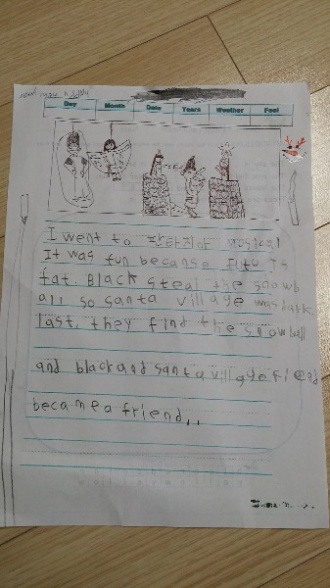 Day Month Date Years Weather Feel
I went to 판타지아 musical
It was fun because FuFu is
fat. Black steal the snowb
all so santa village was
last, they find the snowball
and black and santa village friend
became a friend,,